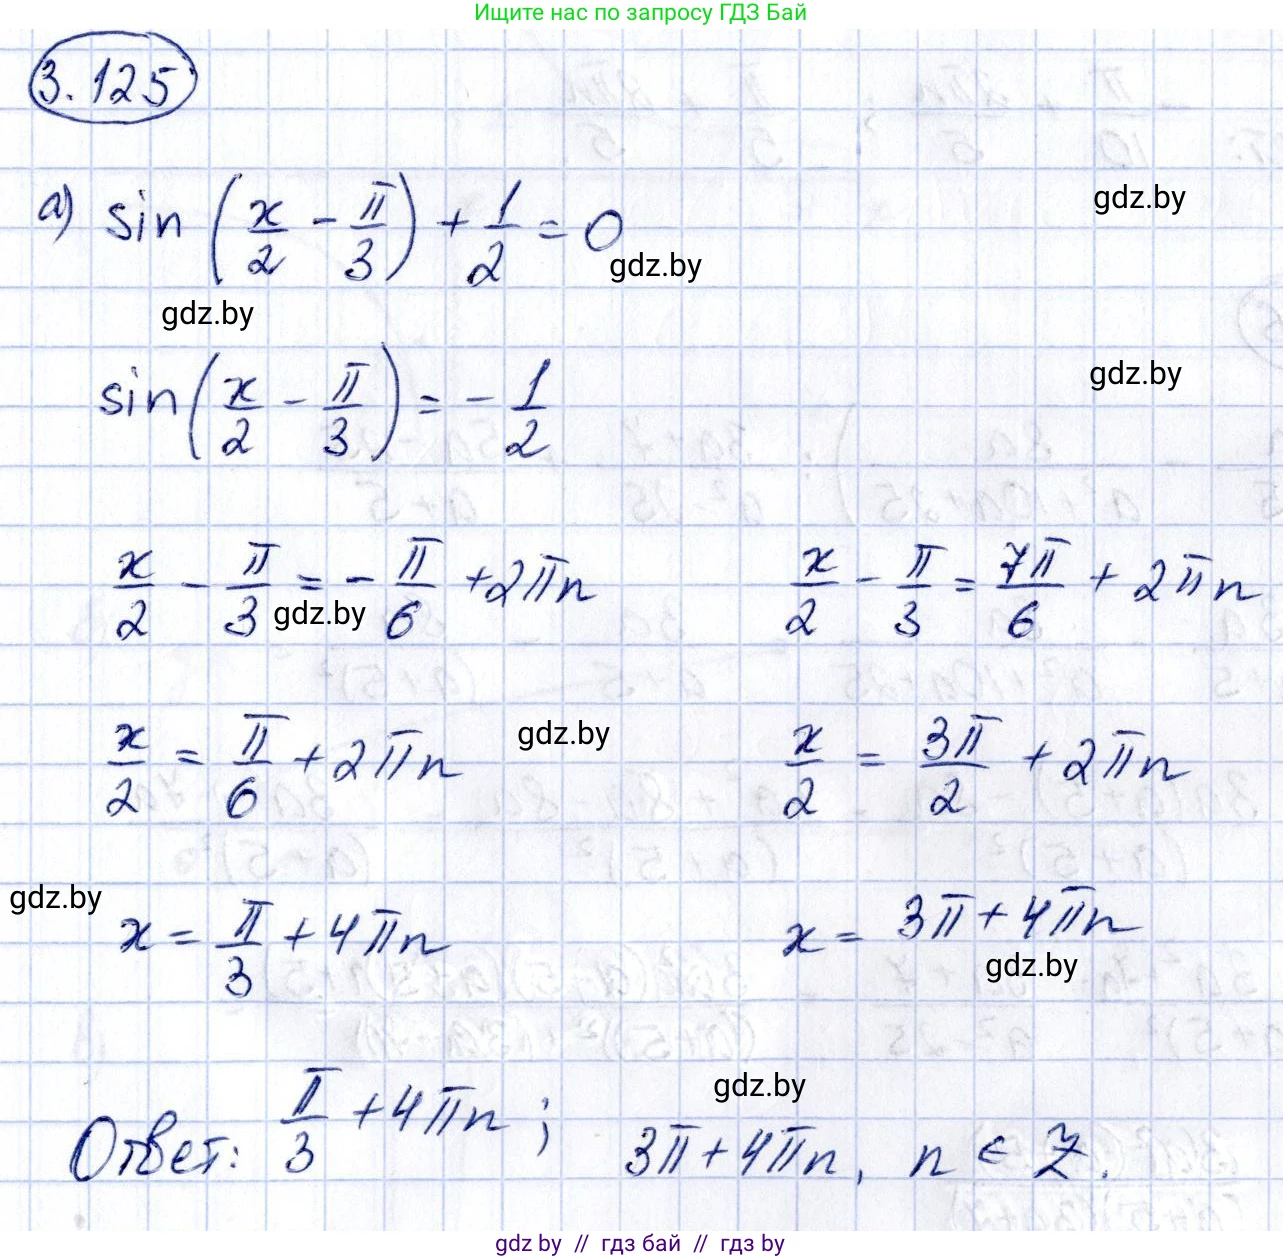 Ищите нас по запросу ГДЗ Бай
3.125
gdz.by
а) sin (x/2 - π/3) + 1/2 = 0
gdz.by
gdz.by
gdz.by
sin(x/2 - π/3) = - 1/2
x/2 - π/3 = - π/6 + 2πn    x/2 - π/3 = 7π/6 + 2πn
gdz.by
gdz.by
x/2 = π/6 + 2πn    x/2 = 3π/2 + 2πn
gdz.by
x = π/3 + 4πn    x = 3π + 4πn
gdz.by
gdz.by
Ответ: π/3 + 4πn; 3π + 4πn, n ∈ Z.
gdz.by // гдз бай // гдз by